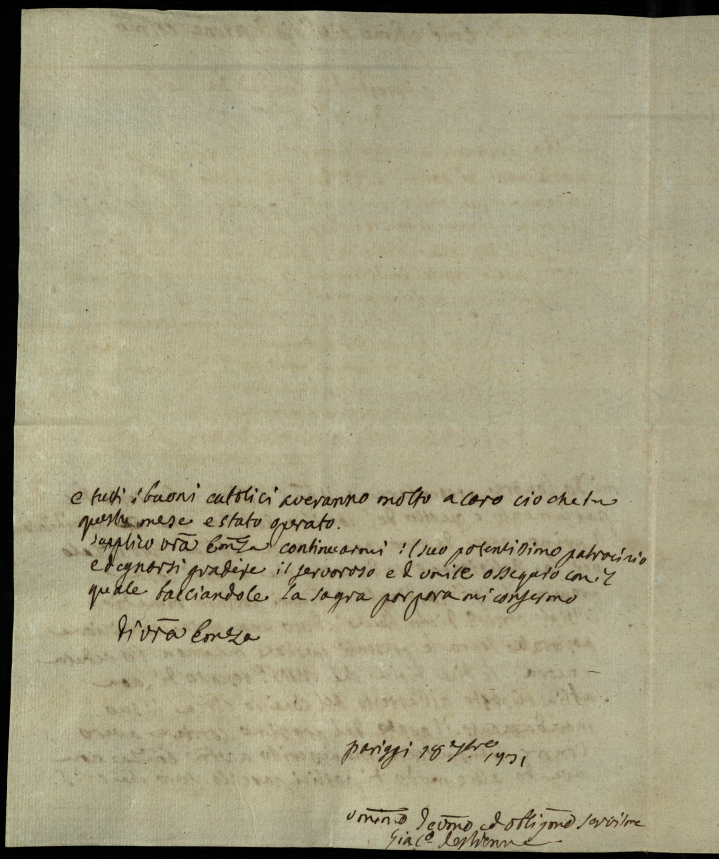 e tutti i buoni catolici averanno molto a caro cio che in
questo mese e stato operato.
supplico vrã Em̃za continuarmi il suo potentissimo patrocinio
e degnarsi gradire il fervoroso ed umile ossequio con il
quale bacciandole la sagra porpora mi confermo
Di vrã Em̃za
pariggi 28 1731
Umĩmo Devm̃o ed obligm̃o servitore
Giac^o